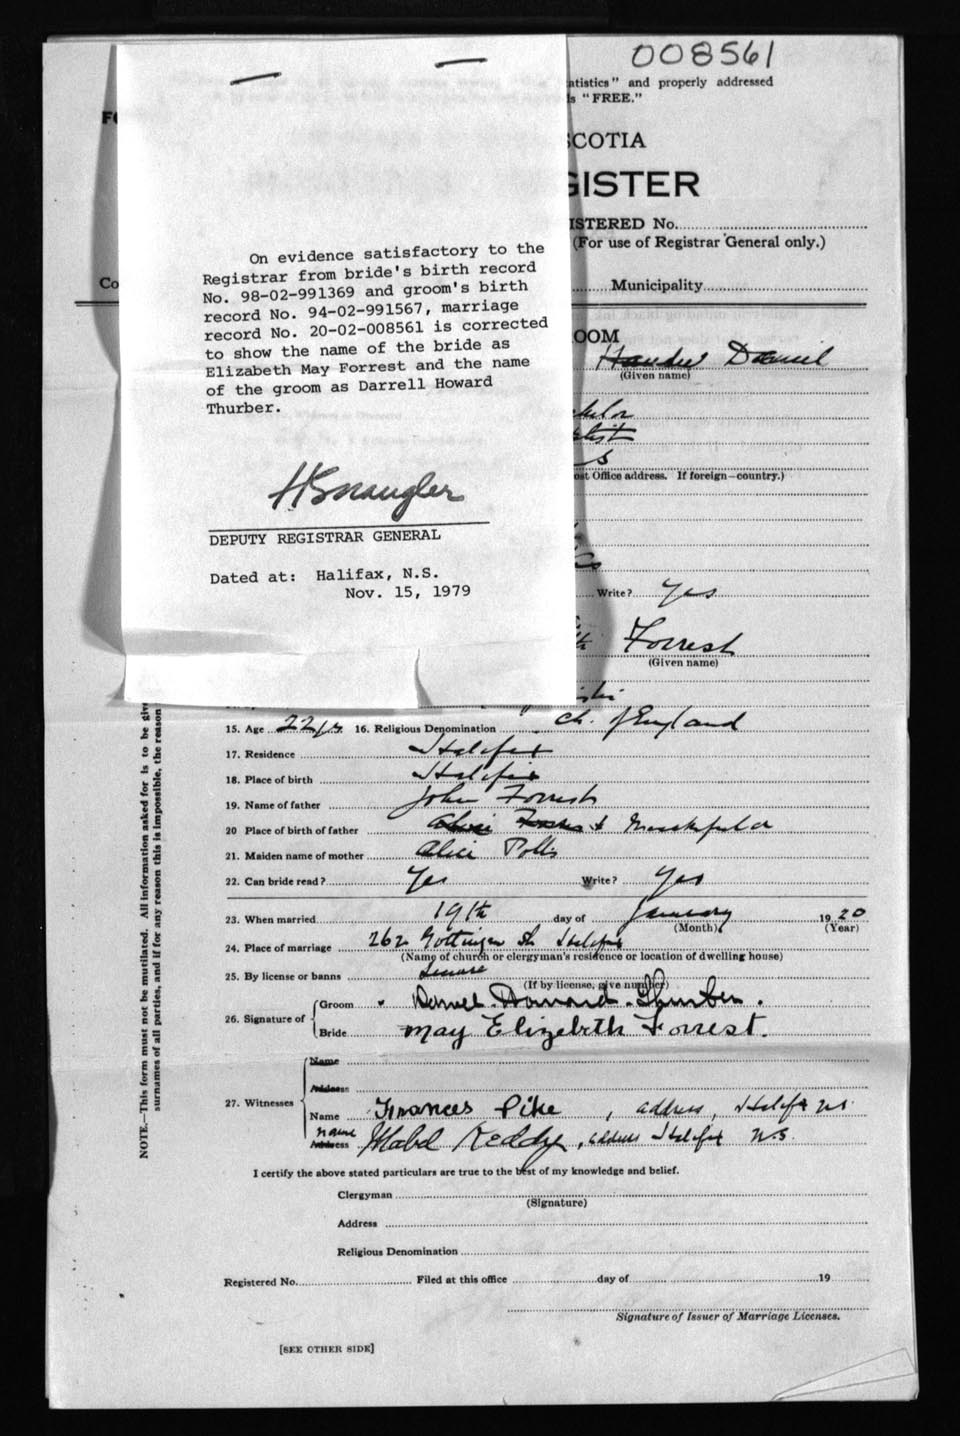 008561
atistics" and properly addressed
is "FREE."
SCOTIA
GISTER
ISTERED No.
(For use of Registrar General only.)
Co
Municipality
On evidence satisfactory to the
Registrar from bride's birth record
No. 98-02-991369 and groom's birth
record No. 94-02-991567, marriage
record No. 20-02-008561 is corrected
to show the name of the bride as
Elizabeth May Forrest and the name
of the groom as Darrell Howard
Thurber.
DEPUTY REGISTRAR GENERAL
Dated at: Halifax, N.S.
Nov. 15, 1979
OOM
Daniel
(Given name)
ost Office address. If foreign—country.)
Write? Yes
Forrest
(Given name)
15. Age 22 yrs 16. Religious Denomination Ch. of England
17. Residence Halifax
18. Place of birth Halifax
19. Name of father John Forrest
20 Place of birth of father
21. Maiden name of mother Alice
22. Can bride read? Yes Write? Yes
23. When married 19th day of January 1920
(Month) (Year)
24. Place of marriage 262 Gottingen St. Halifax
(Name of church or clergyman's residence or location of dwelling house)
25. By license or banns License
(If by license, give number)
26. Signature of Groom Thurber.
Bride May Elizebeth Forrest.
27. Witnesses Name
Address
Name Frances Pike, address, Halifax NS.
name
Address Mabel Keddy, address Halifax N.S.
I certify the above stated particulars are true to the best of my knowledge and belief.
Clergyman
(Signature)
Address
Religious Denomination
Registered No. Filed at this office day of 19
Signature of Issuer of Marriage Licenses.
[SEE OTHER SIDE]
NOTE.—This form must not be mutilated. All information asked for is to be give
surnames of all parties, and if for any reason this is impossible, the reason